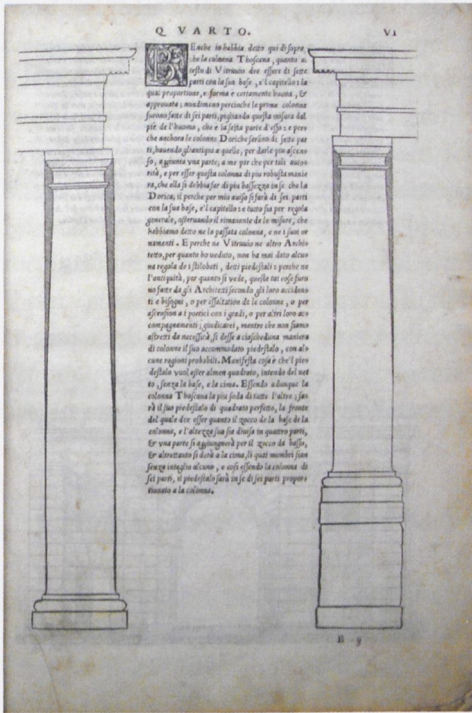 Q VARTO. VI
BEnche io habbia detto qui di sopra,
che la colonna Thoscana, quanto al
testo di Vitruuio dee essere di sette
parti con la sua base, e'l capitello: la
qual proportione, e forma è certamente buona, &
approuata: nondimeno percioche le prime colonne
furono fatte di sei parti, pigliando questa misura dal
piè de l'huomo, che è la sesta parte d'esso: e perche
che anchora le colonne Doriche sariano di sette par
ti, hauendo gliantiqui a quelle, per darle più ascenso
so, aggiunta vna parte, a me par che per tale auto
rità, e per esser questa colonna di piu robusta manie
ra, che ella si debbia far di piu bassezza in se che la
Dorica, il perche per mio auiso si farà di sei parti
con la sua base, e'l capitello: e tutto sia per regola
generale, osseruando il rimanente de le misure, che
habbiamo dette ne la passata colonna, e ne i suoi or
namenti. E perche ne Vitruuio ne altro Archi-
tetto, per quanto ho veduto, non ha mai dato alcu-
na regola de i stilobati, detti piedestali: perche ne
l'antiquità, per quanto si vede, queste tai cose furo
no fatte da gli Architetti secondo gli loro accidenti
ti e bisogni, o per essaltation de le colonne, o per
ascension a i portici con i gradi, o per altri loro acco
compagnamenti; giudicarei, mentre che non siamo
astretti da necessità, si desse a ciascheduna maniera
di colonne il suo accommodato piedestalo, con alcu
cune ragioni probabili. Manifesta cosa è che'l pie-
destalo vuol esser almen quadrato, intendo del net
to, senza la base, e la cima. Essendo adunque la
colonna Thoscana la piu soda di tutte l'altre, sarà
rà il suo piedestalo di quadrato perfetto, la fronte
del quale dee esser quanto il zocco de la base de la
colonna, e l'altezza sua sia diuisa in quattro parti,
& vna parte si aggiungerà per il zocco da basso,
& altrettanto si darà a la cima, li quai membri sian
senza intaglio alcuno, e cosi essendo la colonna di
sei parti, il piedestalo sarà in se di sei parti propor-
tionato a la colonna.
B